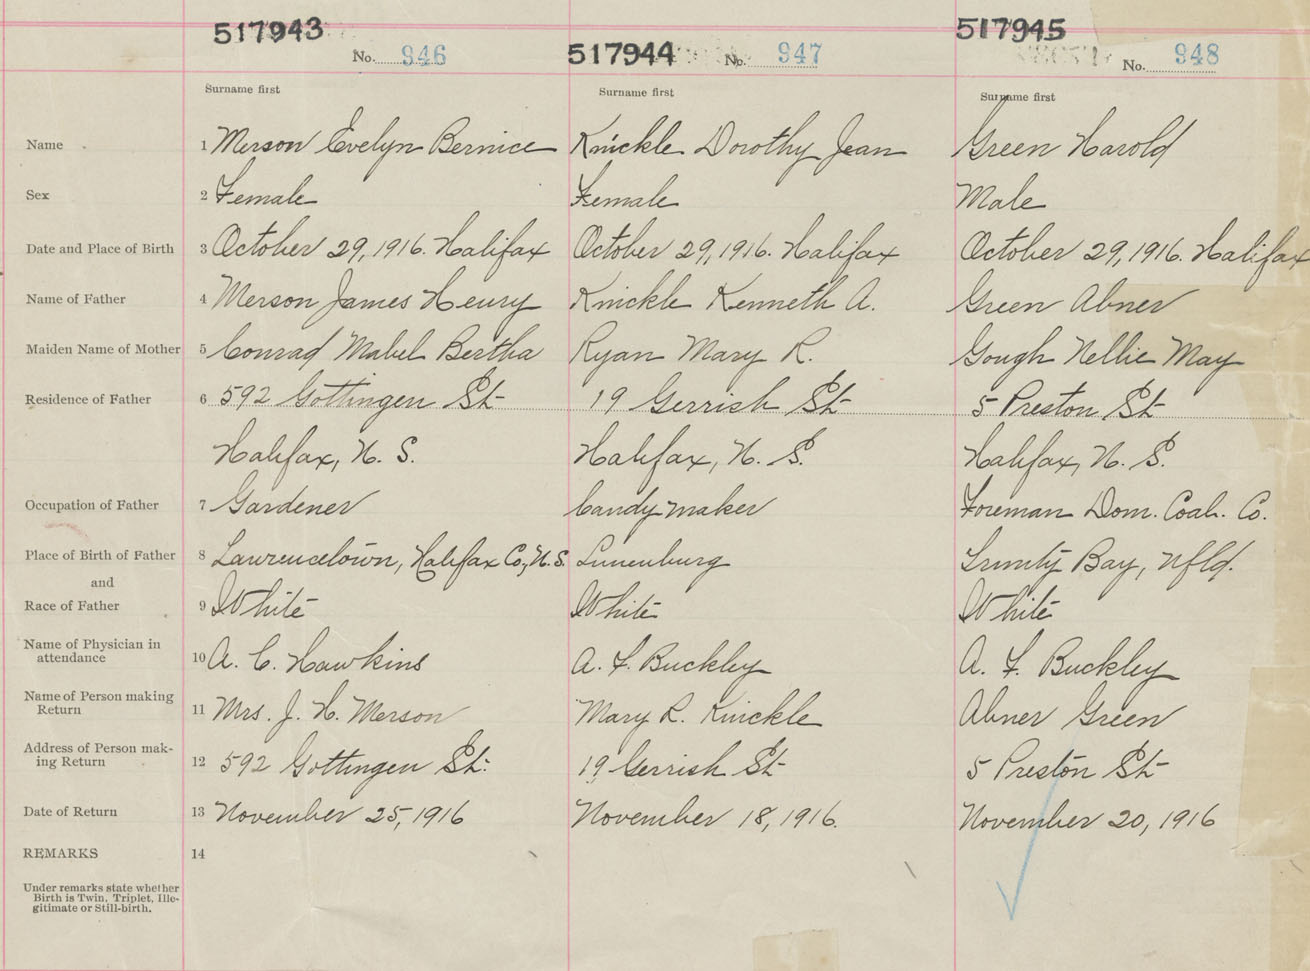 517943 No. 946 517944 No. 947 517945 No. 948
Surname first Surname first Surname first
Name 1 Merson Evelyn Bernice Knickle Dorothy Jean Green Harold
Sex 2 Female Female Male
Date and Place of Birth 3 October 29, 1916. Halifax October 29, 1916. Halifax October 29, 1916. Halifax
Name of Father 4 Merson James Henry Knickle Kenneth A. Green Abner
Maiden Name of Mother 5 Conrad Mabel Bertha Ryan Mary R. Gough Nellie May
Residence of Father 6 592 Gottingen St 19 Gerrish St 5 Preston St
Halifax, N. S. Halifax, N. S. Halifax, N. S.
Occupation of Father 7 Gardener Candy maker Foreman Dom. Coal. Co.
Place of Birth of Father 8 Lawrencetown, Halifax Co., N. S. Lunenburg Trinity Bay, Nfld.
and
Race of Father 9 White White White
Name of Physician in
attendance 10 A. C. Hawkins A. F. Buckley A. F. Buckley
Name of Person making
Return 11 Mrs. J. H. Merson Mary R. Knickle Abner Green
Address of Person mak-
ing Return 12 592 Gottingen St. 19 Gerrish St 5 Preston St
Date of Return 13 November 25, 1916 November 18, 1916. November 20, 1916
REMARKS 14
Under remarks state whether
Birth is Twin, Triplet, Ille-
gitimate or Still-birth.